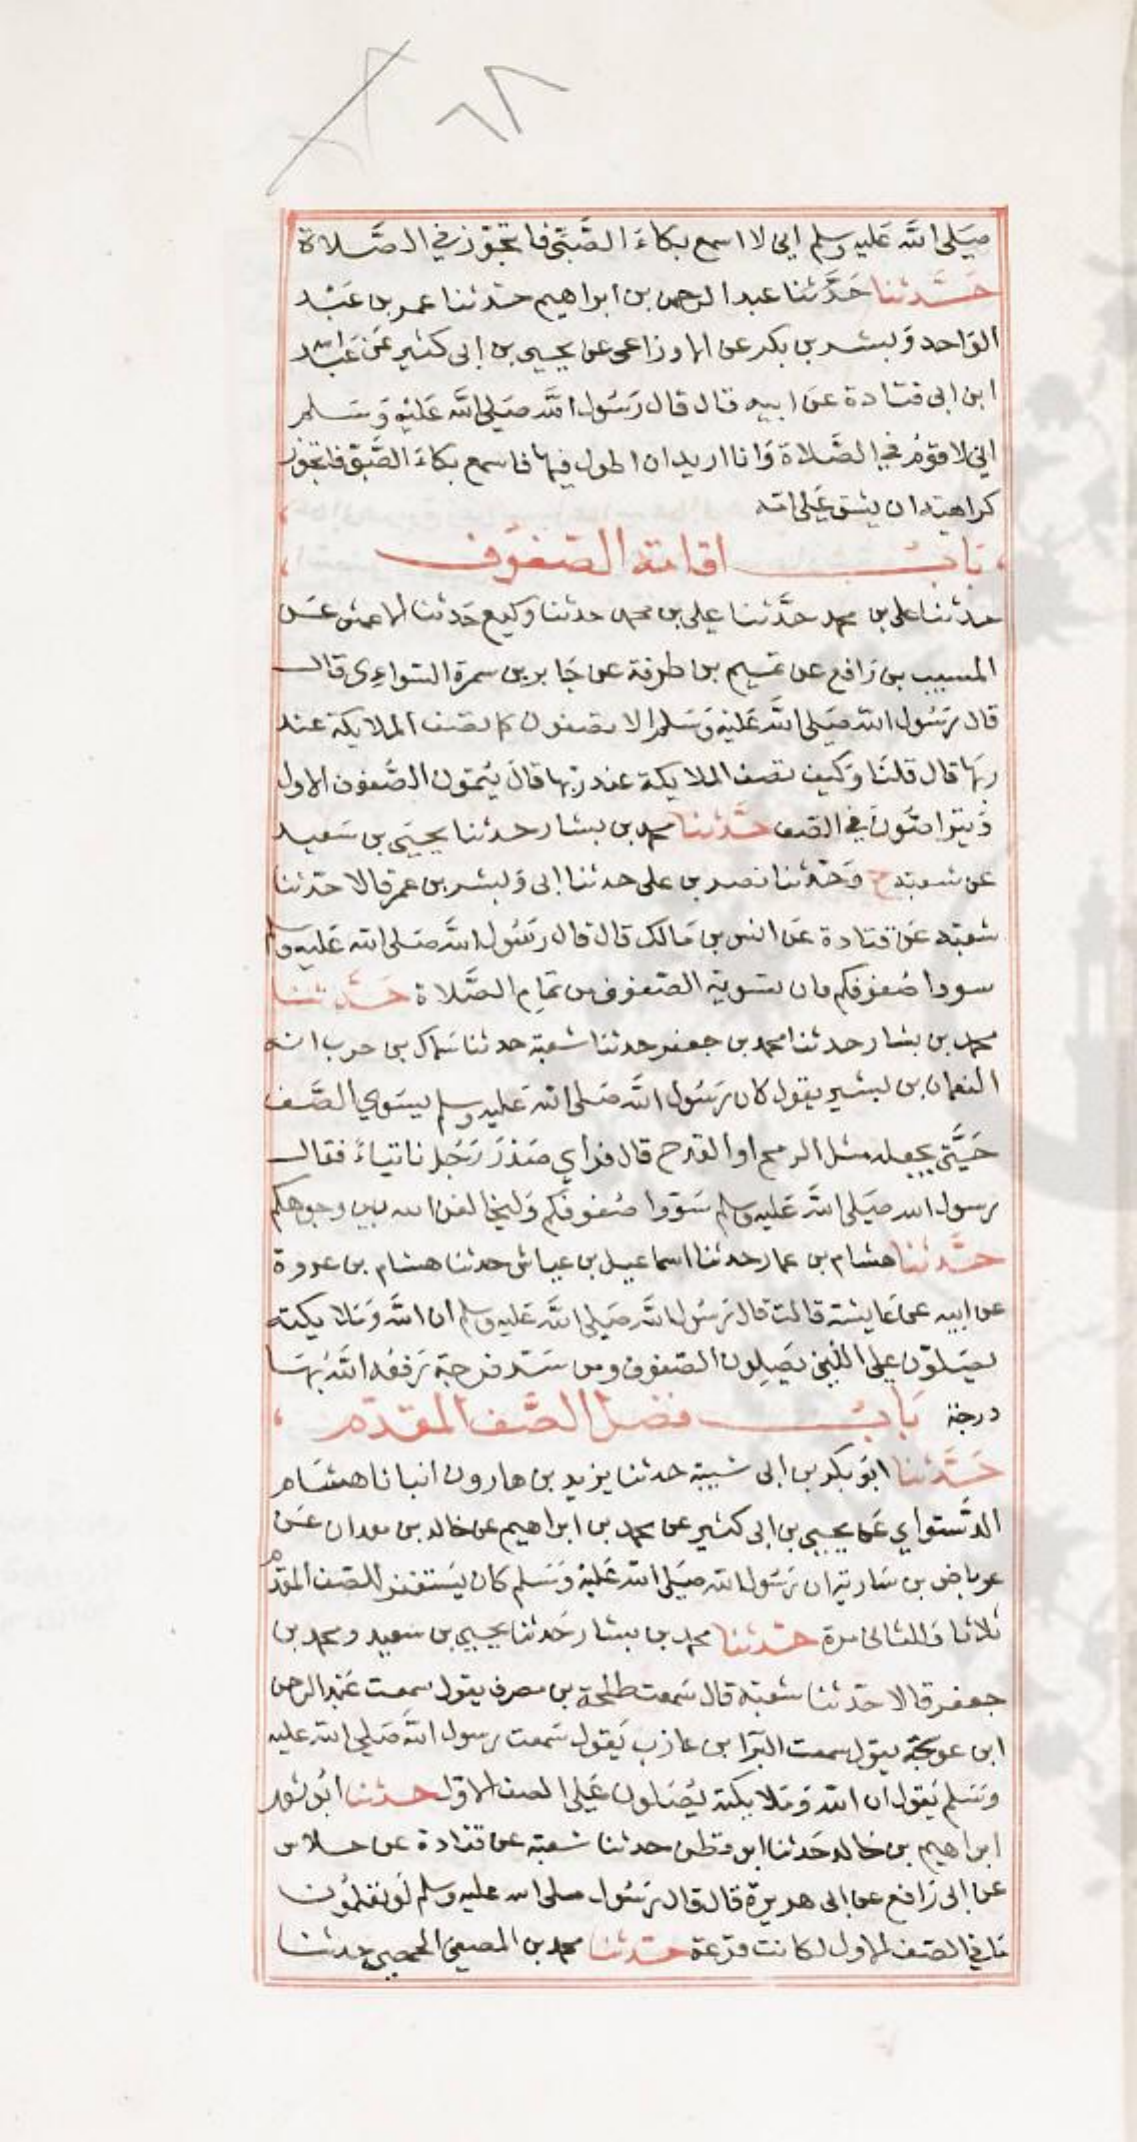 ٦٨
صَلى الله عَليه وسلم اني لا اسمع بكاءَ الصَّبَّى فاتجوَّز في الصَّلاة
حَدَّثنا حَدَّثنا عبد الرحمن بن ابراهيم حدثنا عمر بن عَبْد
الوَاحد وَبشر بن بكر عن الاوزاعى عن يحيى بن ابى كثير عَن عَبد الله
ابن ابى قتادة عن ابيه قال قال رَسُول الله صَلى الله عَليْه وَسَلم
اني لاقومُ في الصَّلاة وَانا اريد ان اطول فيها فاسمع بكاءَ الصَّبى فاتجوز
كراهية ان يشق عَلى امه
بَابُ اقامة الصفوف
حدثنا على بن محمد حدَّثنا على بن محمد حدثنا وكيع حَدثنا الاعمش عَن
المسيب بن رَافع عن تميم بن طرفة عن جَابر بن سمرة السواءِى قال
قال رَسُول الله صَلى الله عَليْه وَسَلم الا تصفون كما تصف الملايكة عند
ربهَا قال قلنَا وَكيف تصف الملايكة عند ربها قالَ يُتمون الصَّفوف الاول
وَيتراصُّونَ في الصف حدَّثنا محمد بن بشار حدثنا يحيَى بن سَعيد
عَن شعبة ح وَحدثنا نصر بن على حدثنا ابى وَبشر بن عمر قالا حدثنا
شعبَة عَن قتادة عَن انس بن مَالك قال قال رَسُول الله صَلى الله عَليه وسلم
سووا صُفوفكم فان تسوية الصفوف من تمَام الصَّلاة حَدَّثنا
محمد بن بشار حدثنا محمد بن جعفر حدثنا شعبة حدثنا سماك بن حرب انه
النعمان بن بشير يقول كان رَسُول الله صَلى الله عَليه وسلم يسَوي الصَّف
حَتَّى يجعله مثل الرمح او القدح قال فراي صَدْرَ رَجُل ناتياءَ فقال
رسول الله صَلى الله عَليه وسلم سَووا صُفوفكم وَليخالفن الله بين وجوهكم
حدَّثنا هشام بن عمار حدثنا اسماعيل بن عياش حدثنا هشام بن عروة
عن ابيه عن عَايشة قالت قال رَسُول الله صَلى الله عَليه وسلم ان الله وَملايكته
يصَلوّن على اللذين يَصِلون الصفوف ومن سَدّ فرجة رَفعه الله بهَا
درجة بَابُ فضل الصَّف المقدّم
حَدَّثنا ابوَ بكر بن ابى شيبة حدثنا يزيد بن هارون انبانا هشَام
الدَّستواي عَن يحيى بن ابى كثير عن محمد بن ابراهيم عن خالد بن معدان عَن
عرباض بن سَارية ان رَسُول الله صَلى الله عَليْه وَسَلم كان يَستغفر للصف المقدم
ثلاثا وَللثانى مرة حدَّثنا محمد بن بشار حَدثنا يحيى بن سَعيد ومحمد بن
جعفر قالا حدّثنا شعبَة قال سَمعت طلحَة بن مصرف يقول سمعت عَبد الرحمن
ابن عوسَجة يقول سمعت البرّا بن عازب يَقول سَمعت رسول الله صَلى الله عليه
وَسَلم يَقول ان الله وَملايكته يُصَلون عَلى الصف الاول حدثنا ابُو ثور
ابراهيم بن خالد حَدثنا ابو قطن حدثنا شعبة عن قتادة عن خلاس
عن ابى رَافع عن ابى هريرة قال قال رَسُول صلى الله عليه وسلم لَو تعلمُون
مَا في الصف الاول لكانت قرعة حدّثنا محمد بن المصفى الحمصي حدثنا